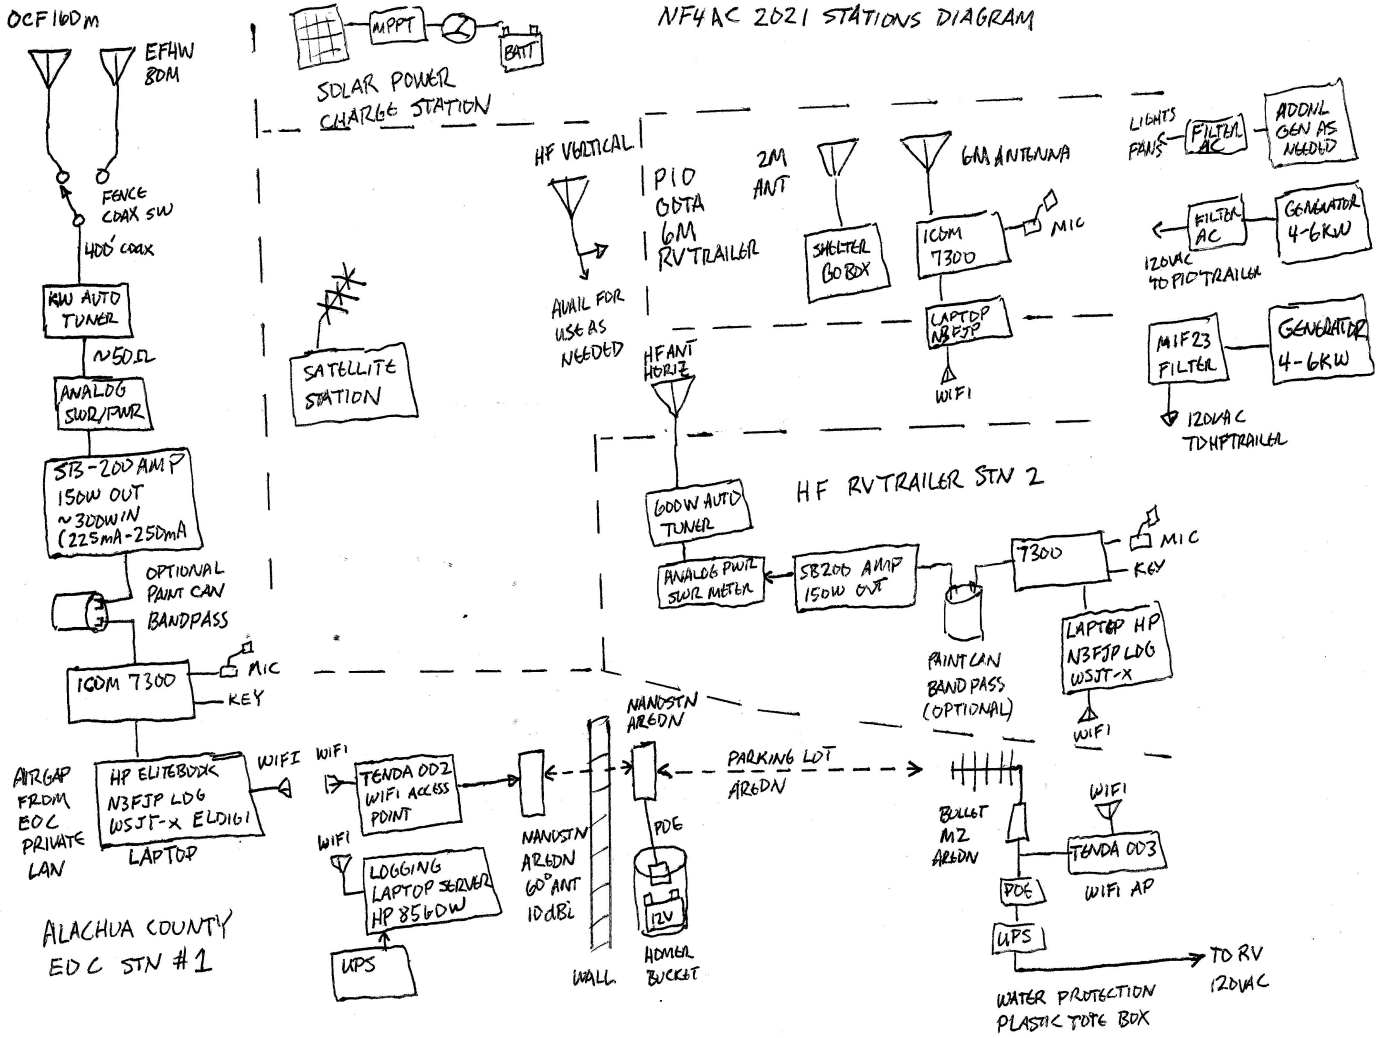 NF4AC 2021 STATIONS DIAGRAM
OCF160m
EFHW
80M
FENCE
COAX SW
400' COAX
KW AUTO
TUNER
~50Ω
ANALOG
SWR/PWR
SB-200 AMP
150W OUT
~300W IN
(225mA-250mA
OPTIONAL
PAINT CAN
BANDPASS
ICOM 7300
MIC
KEY
AIRGAP
FROM
EOC
PRIVATE
LAN
HP ELITEBOOK
N3FJP LOG
WSJT-X FLDIGI
LAPTOP
WIFI
ALACHUA COUNTY
EOC STN #1
MPPT
BATT
SOLAR POWER
CHARGE STATION
SATELLITE
STATION
HF VERTICAL
AVAIL FOR
USE AS
NEEDED
PIO
GOTA
6M
RV TRAILER
2M
ANT
SHELTER
GO BOX
6M ANTENNA
ICOM
7300
MIC
LAPTOP
N3FJP
WIFI
LIGHTS
FANS
FILTER
AC
ADDNL
GEN AS
NEEDED
FILTER
AC
GENERATOR
4-6KW
120VAC
TO PIO TRAILER
MIF23
FILTER
GENERATOR
4-6KW
120VAC
TO HF TRAILER
HF ANT
HORIZ
HF RV TRAILER STN 2
600W AUTO
TUNER
ANALOG PWR
SWR METER
SB200 AMP
150W OUT
7300
MIC
KEY
PAINT CAN
BAND PASS
(OPTIONAL)
LAPTOP HP
N3FJP LOG
WSJT-X
WIFI
WIFI
TENDA 002
WIFI ACCESS
POINT
WIFI
LOGGING
LAPTOP SERVER
HP 8560W
UPS
NANOSTN
AREDN
60° ANT
10dBi
WALL
NANOSTN
AREDN
POE
12V
HOMER
BUCKET
PARKING LOT
AREDN
BULLET
M2
AREDN
WIFI
TENDA 003
WIFI AP
POE
UPS
TO RV
120VAC
WATER PROTECTION
PLASTIC TOTE BOX